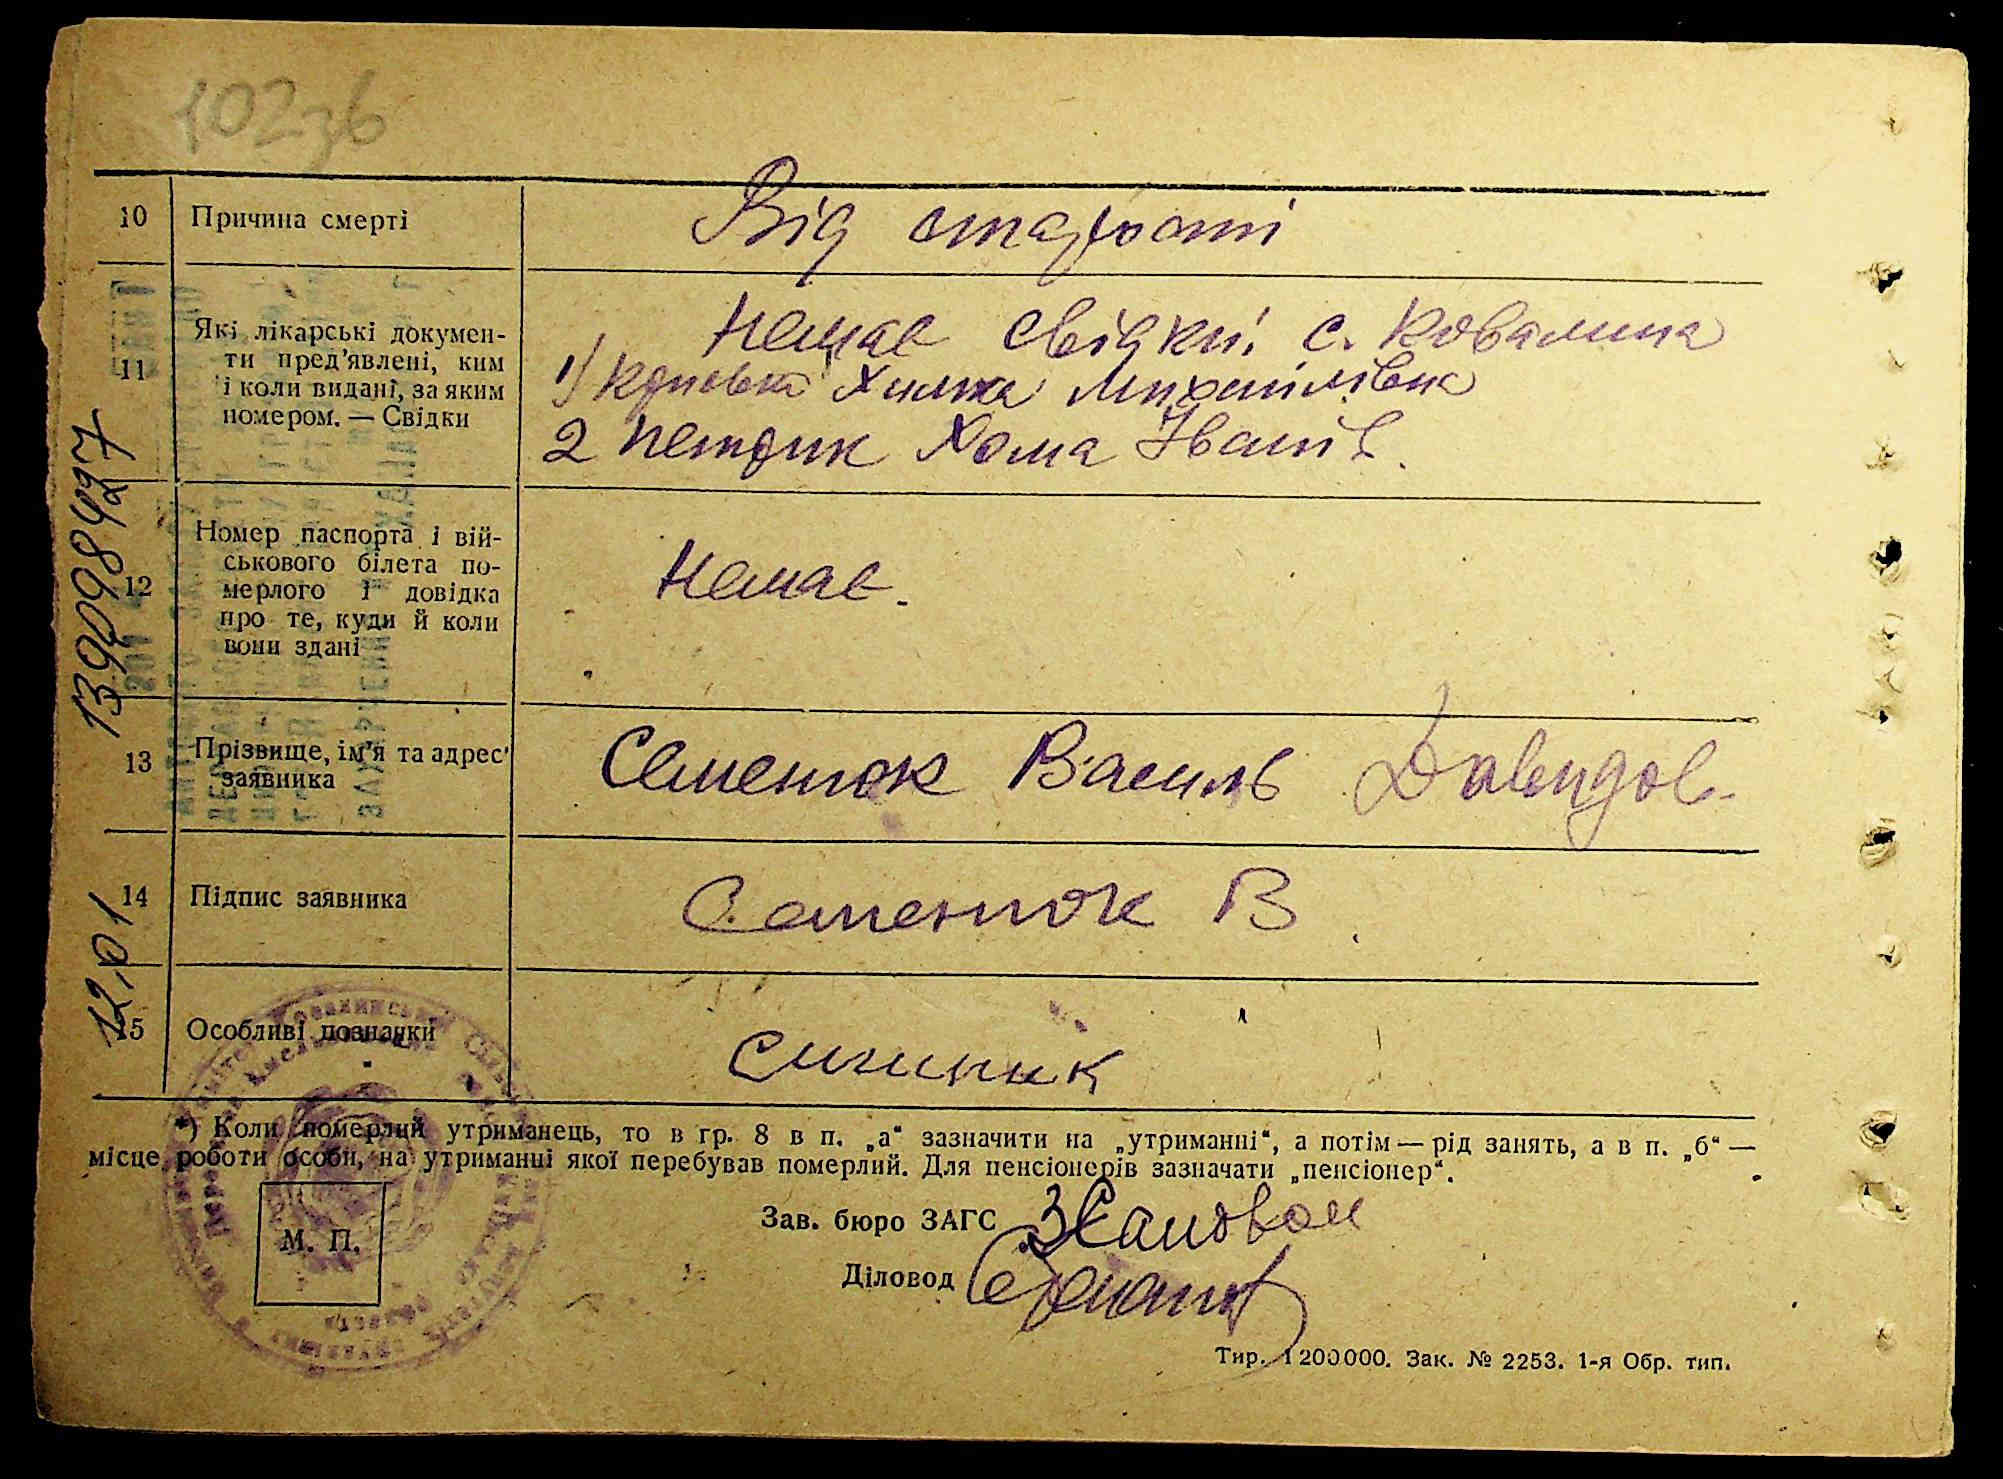 102зв
10 Причина смерті Від старости
11 Які лікарські докумен-
ти пред'явлені, ким
і коли видані, за яким
номером. — Свідки
Немає свідкиї с. Ковалина
1) Химка Михайлівна
2 Петрик Хома Іванів.
12 Номер паспорта і вій-
ськового білета по-
мерлого і довідка
про те, куди й коли
вони здані
Немає.
13 Прізвище, ім'я та адрес
заявника
Семенюк Василь Давидов.
14 Підпис заявника Семенюк В
15 Особливі познапки
*) Коли померлий утриманець, то в гр. 8 в п. „а“ зазначити на „утриманні“, а потім — рід занять, а в п. „б“ —
місце роботи особи, на утриманні якої перебував померлий. Для пенсіонерів зазначати „пенсіонер“.
М. П.
Зав. бюро ЗАГС
Діловод
Тир. 1200000. Зак. № 2253. 1-я Обр. тип.
1390984927
12,01